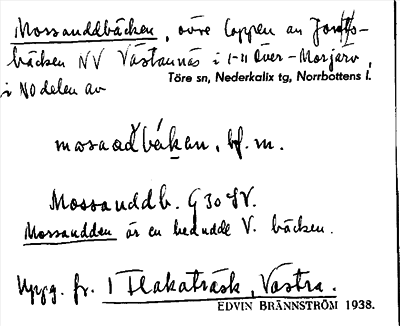 Mossanddbäcken, övre loppen av
bäcken NV Västannäs i 1-11 Över-Morjärv,
i NO delen av Töre sn, Nederkalix tg, Norrbottens l.
bf. m.
Mossanddb. G 30 SV.
Mossandden är en hedudde V. bäcken.
Uppg. fr. 1 Flakaträsk, Västra.
EDVIN BRÄNNSTRÖM 1938.